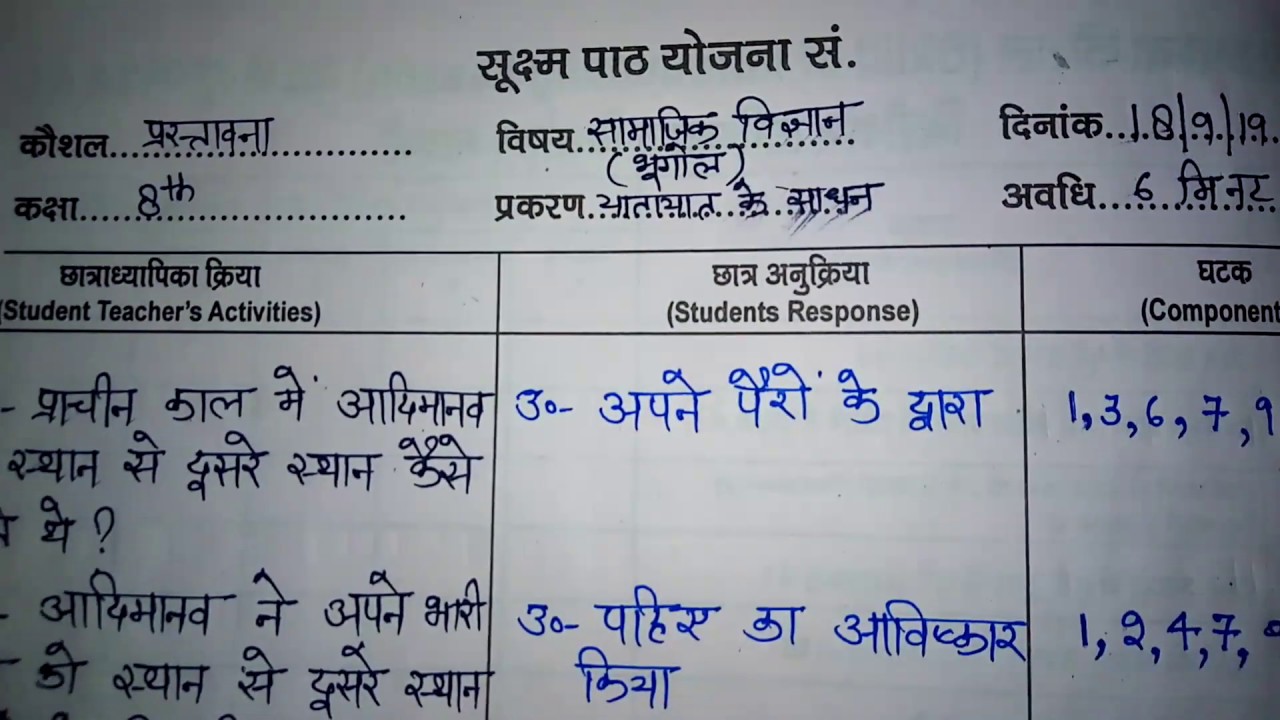 सूक्ष्म पाठ योजना सं.
कौशल....प्रस्तावना.................... विषय..सामाजिक विज्ञान...... दिनांक..18/9/19.
(भूगोल)
कक्षा......8th.......................... प्रकरण..यातायात के साधन अवधि...6 मिनट
छात्राध्यापिका क्रिया छात्र अनुक्रिया घटक
(Student Teacher's Activities) (Students Response) (Component
- प्राचीन काल में आदिमानव उ०- अपने पैरों के द्वारा 1,3,6,7,9
स्थान से दूसरे स्थान कैसे
थे ?
- आदिमानव ने अपने भारी उ०- पहिए का आविष्कार 1,2,4,7,
को स्थान से दूसरे स्थान किया